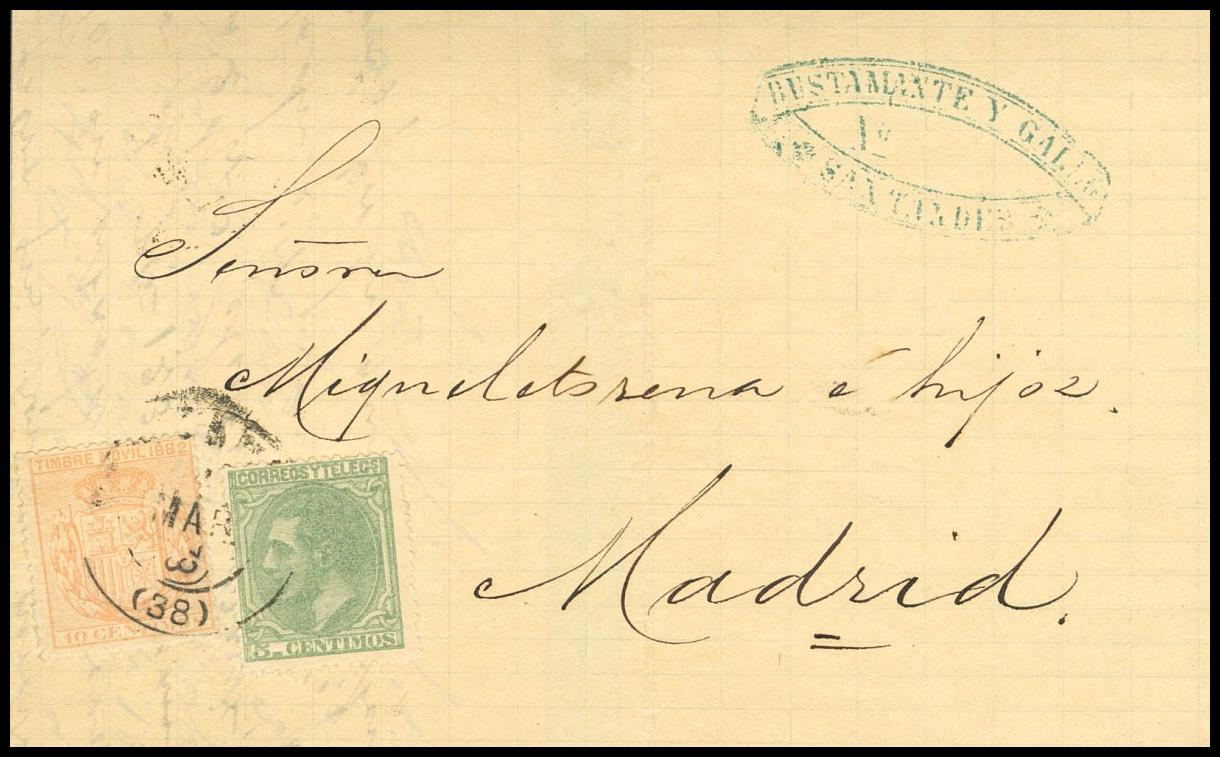 BUSTAMANTE Y GAL
1ª
SANTANDER
Señores
Migueletorena é hijos.
Madrid.
TIMBRE MOVIL 1882
10 CEN
MAR
82
(38)
CORREOS Y TELEGS
5. CENTIMOS